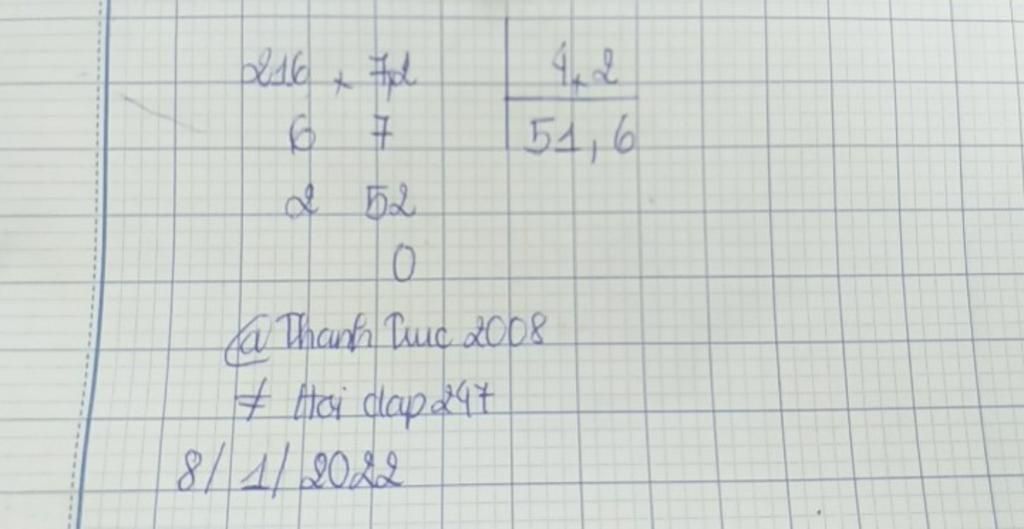 216 , 72 4,2
6 7 51,6
2 52
0
@ Thanh Truc 2008
≠ Hoi dap 247
8/1/2022